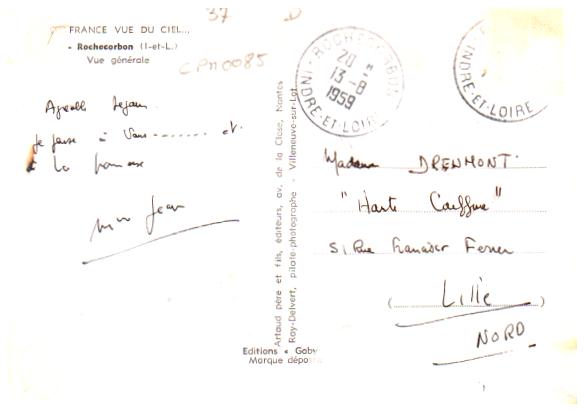 37 D
FRANCE VUE DU CIEL...
- Rochecorbon (I-et-L.)
Vue générale
CPM0085
Agréable séjour.
Je pense à Vous ........ et
à la
Jean
Artaud père et fils, éditeurs, av. de la Close, Nantes
Ray-Delvert, pilote-photographe - Villeneuve-sur-Lot
Editions « Gaby
Marque dépos
ROCHECORBON
20 H
13-8
1959
INDRE-ET-LOIRE
INDRE-ET-LOIRE
Madame DRENMONT.
"Haute Coiffure"
51 Rue Ferrer
(Lille)
NORD